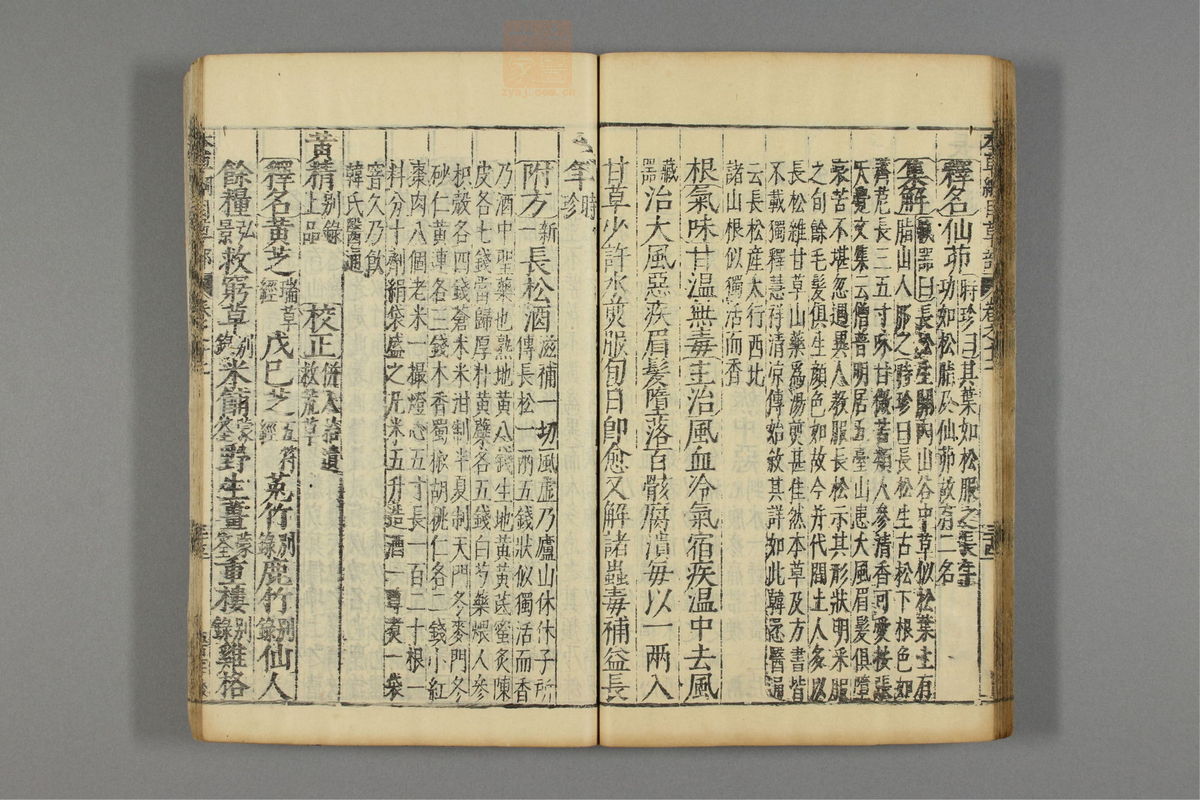 本草綱目草部
釋名仙茆時珍曰其葉如松服之長年功如松脂及仙茆故有二名
集解藏器曰長松生關內山谷中草似松葉上有脂山人服之時珍曰長松生古松下根色如
薺苨長三五寸味甘微苦類人參清香可愛按張
天覺文集云僧普明居五臺山患大風眉髮俱墮
哀苦不堪忽遇異人教服長松示其形狀明采服
之旬餘毛髮俱生顏色如故今并代間土人多以
長松雜甘草山藥爲湯煎甚佳然本草及方書皆
不載獨釋慧祥清涼傳始敘其詳如此韓𢙐醫通
云長松產太行西北
諸山根似獨活而香
根氣味甘溫無毒主治風血冷氣宿疾溫中去風
藏器治大風惡疾眉髮墮落百骸腐潰每以一兩入
甘草少許水煎服旬日卽愈又解諸蟲毒補益長
年時珍
附方新一長松酒滋補一切風虛乃廬山休休子所傳長松一兩五錢狀似獨活而香
乃酒中聖藥也熟地黃八錢生地黃黃芪蜜炙陳
皮各七錢當歸厚朴黃蘗各五錢白芍藥煨人參
枳殼各四錢蒼朮米泔制半夏制天門冬麥門冬
砂仁黃連各三錢木香蜀椒胡桃仁各二錢小紅
棗肉八個老米一撮燈心五寸長一百二十根一
料分十劑絹袋盛之凡米五升造酒一罇煑一袋
窨久乃飲
韓氏醫通
黃精別錄上品 校正併入拾遺救荒草
釋名黃芝瑞草經戊己芝五符經菟竹別錄鹿竹別錄仙人
餘糧弘景救窮草別錄米䭀蒙筌野生薑蒙筌重樓別錄雞格